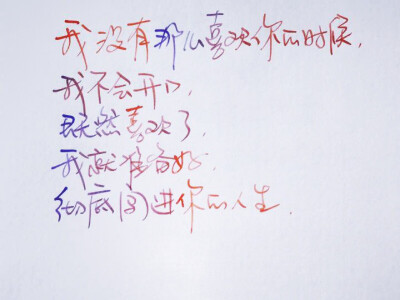 我没有那么喜欢你的时候,
我不会开口,
既然喜欢了,
我就准备好,
彻底闯进你的人生.